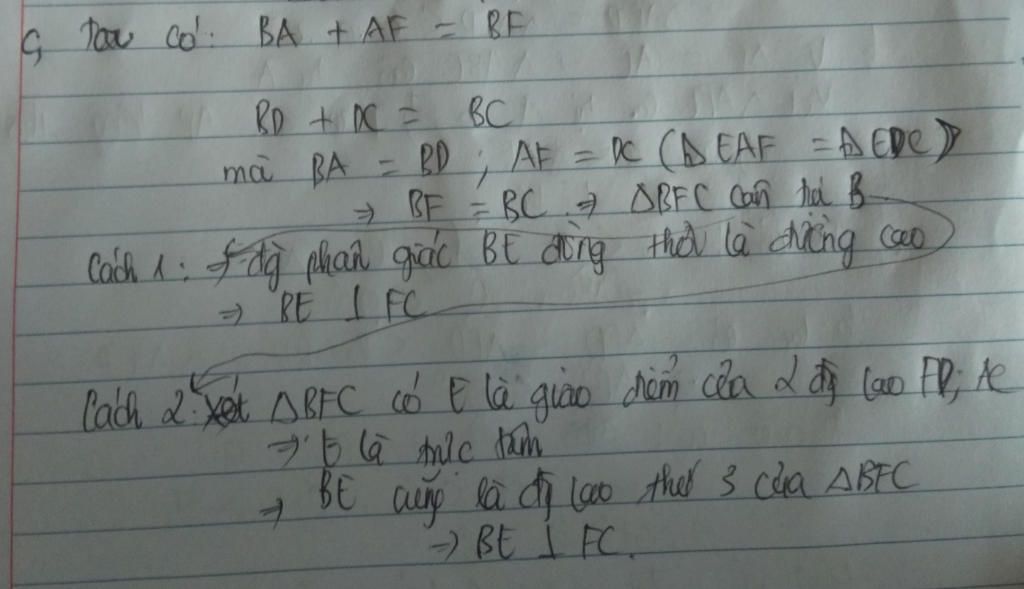 c, Ta có: BA + AF = BF
BD + DC = BC
mà BA = BD ; AF = DC (ΔEAF = ΔEDC)
⇒ BF = BC ⇒ ΔBFC cân tại B
Cách 1: ⇒ đg phân giác BE đồng thời là đường cao
⇒ BE ⊥ FC
Cách 2: xét ΔBFC có E là giao điểm của 2 đg cao FD; AC
⇒ E là trực tâm
⇒ BE cũng là đg cao thứ 3 của ΔBFC
⇒ BE ⊥ FC.